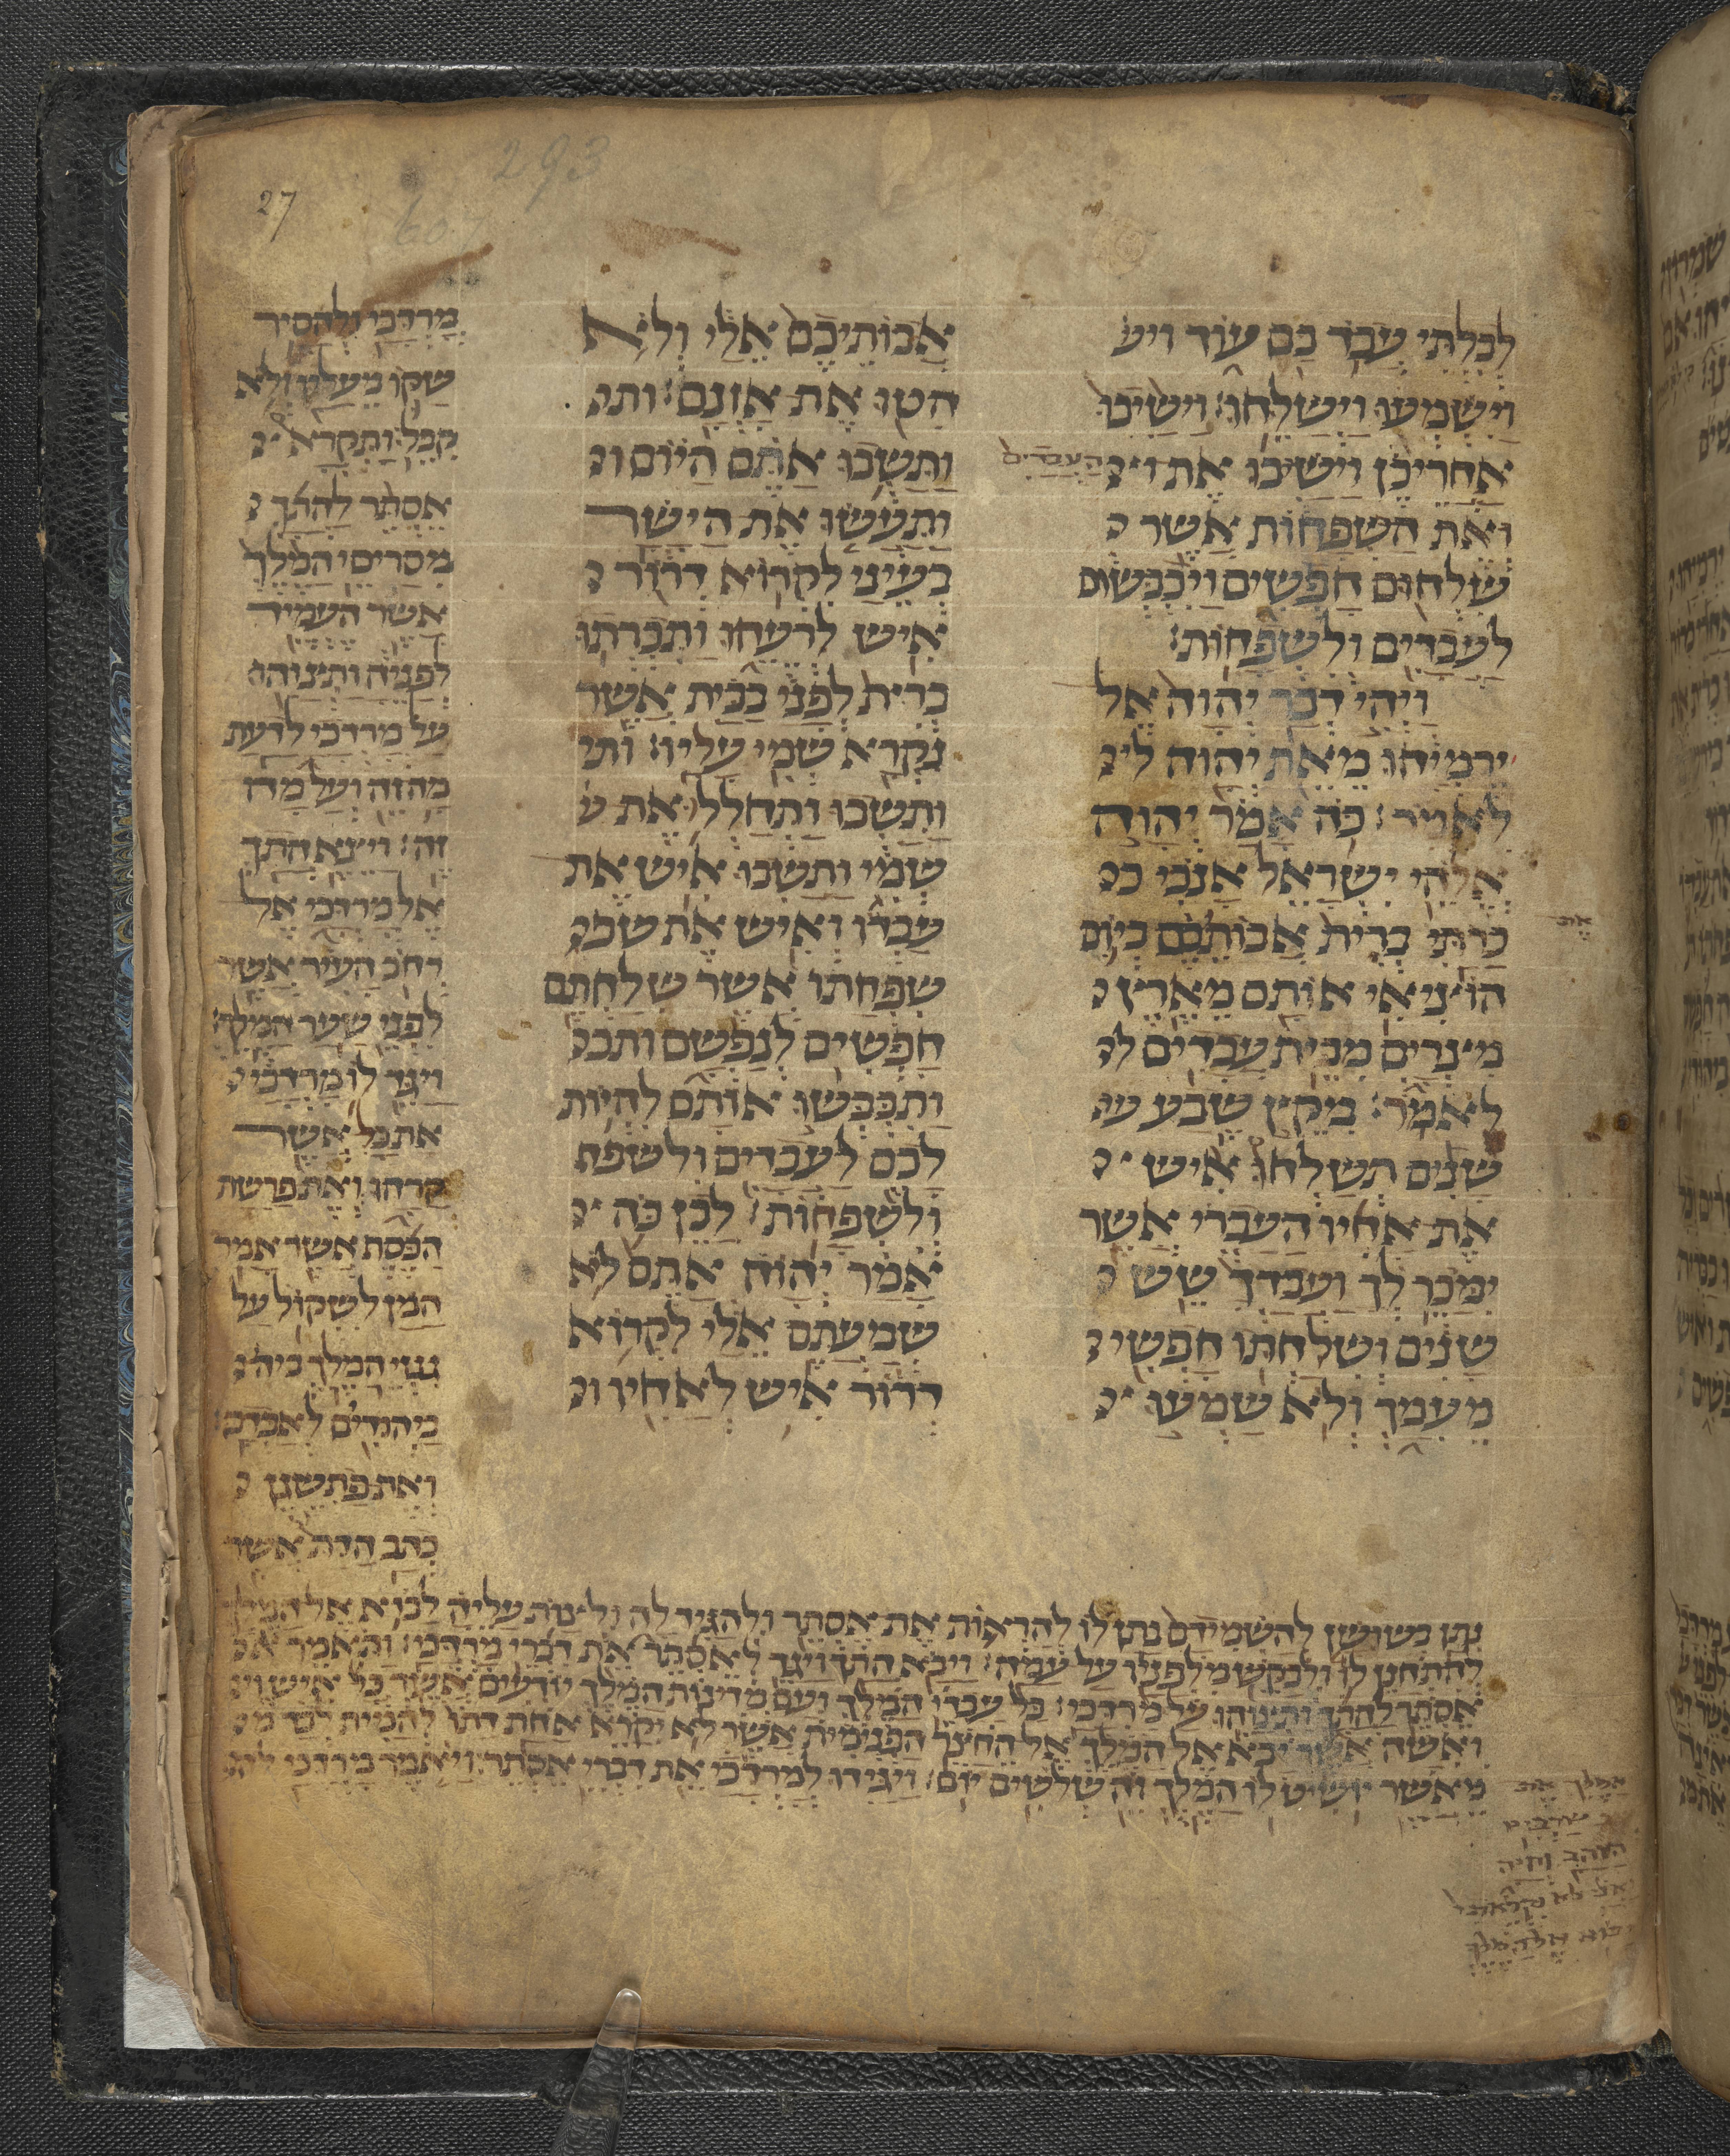 27
293
607
לבלתי עבד בם עוד ויש
וישמעו וישלחו׃ וישיבו
אחריכן וישיבו את
העבדים
ואת השפחות אשר
שלחום חפשים ויכבשום
לעבדים ולשפחות׃
ויהי דבר יהוה אל
ירמיהו מאת יהוה
לאמר׃ כה אמר יהוה
אלהי ישראל אנכי
כרתי ברית אבותכם ביום
את
הוציאי אותם מארץ
מצרים מבית עבדים
לאמר׃ מקץ שבע
שנים תשלחו איש
את אחיו העברי אשר
ימכר לך ועבדך שש
שנים ושלחתו חפשי
מעמך ולא שמעו
אבותיכם אלי ולא
הטו את אזנם׃ ות
ותשבו אתם היום ו
ותעשו את הישר
בעיני לקרוא דרור
איש לרעהו ותכרתו
ברית לפני בבית אשר
נקרא שמי עליו׃ ות
ותשבו ותחללו את ש
שמי ותשבו איש את
עבדו ואיש את שפ
שפחתו אשר שלחתם
חפשים לנפשם ותכ
ותכבשו אותם להיות
לכם לעבדים ולשפח
ולשפחות׃ לכן כה
אמר יהוה אתם לא
שמעתם אלי לקרוא
דרור איש לאחיו ו
מרדכי ולהסיר
שקו מעליו ולא
קבל׃ ותקרא
אסתר להתך
מסריסי המלך
אשר העמיד
לפניה ותצוהו
על מרדכי לדעת
מה זה ועל מה
זה׃ ויצא התך
אל מרדכי אל
רחב העיר אשר
לפני שער המלך׃
ויגד לו מרדכי
את כל אשר
קרהו ואת פרשת
הכסף אשר אמר
המן לשקול על
גנזי המלך
ביהודים לאבדם׃
ואת פתשגן
כתב הדת אשר
נתן בשושן להשמידם נתן לו להראות את אסתר ולהגיד לה ולצות עליה לבוא אל המלך
להתחנן לו ולבקש מלפניו על עמה׃ ויבא התך ויגד לאסתר את דברי מרדכי׃ ותאמר
אסתר להתך ותצוהו על מרדכי׃ כל עבדי המלך ועם מדינות המלך יודעים אשר כל איש
ואשה אשר יבא אל המלך אל החצר הפנימית אשר לא יקרא אחת דתו להמית לבד
מאשר יושיט לו המלך את
שרביט
הזהב וחיה
אני לא נקראתי
לבוא אל המלך
זה שלשים יום׃ ויגידו למרדכי את דברי אסתר׃ ויאמר מרדכי